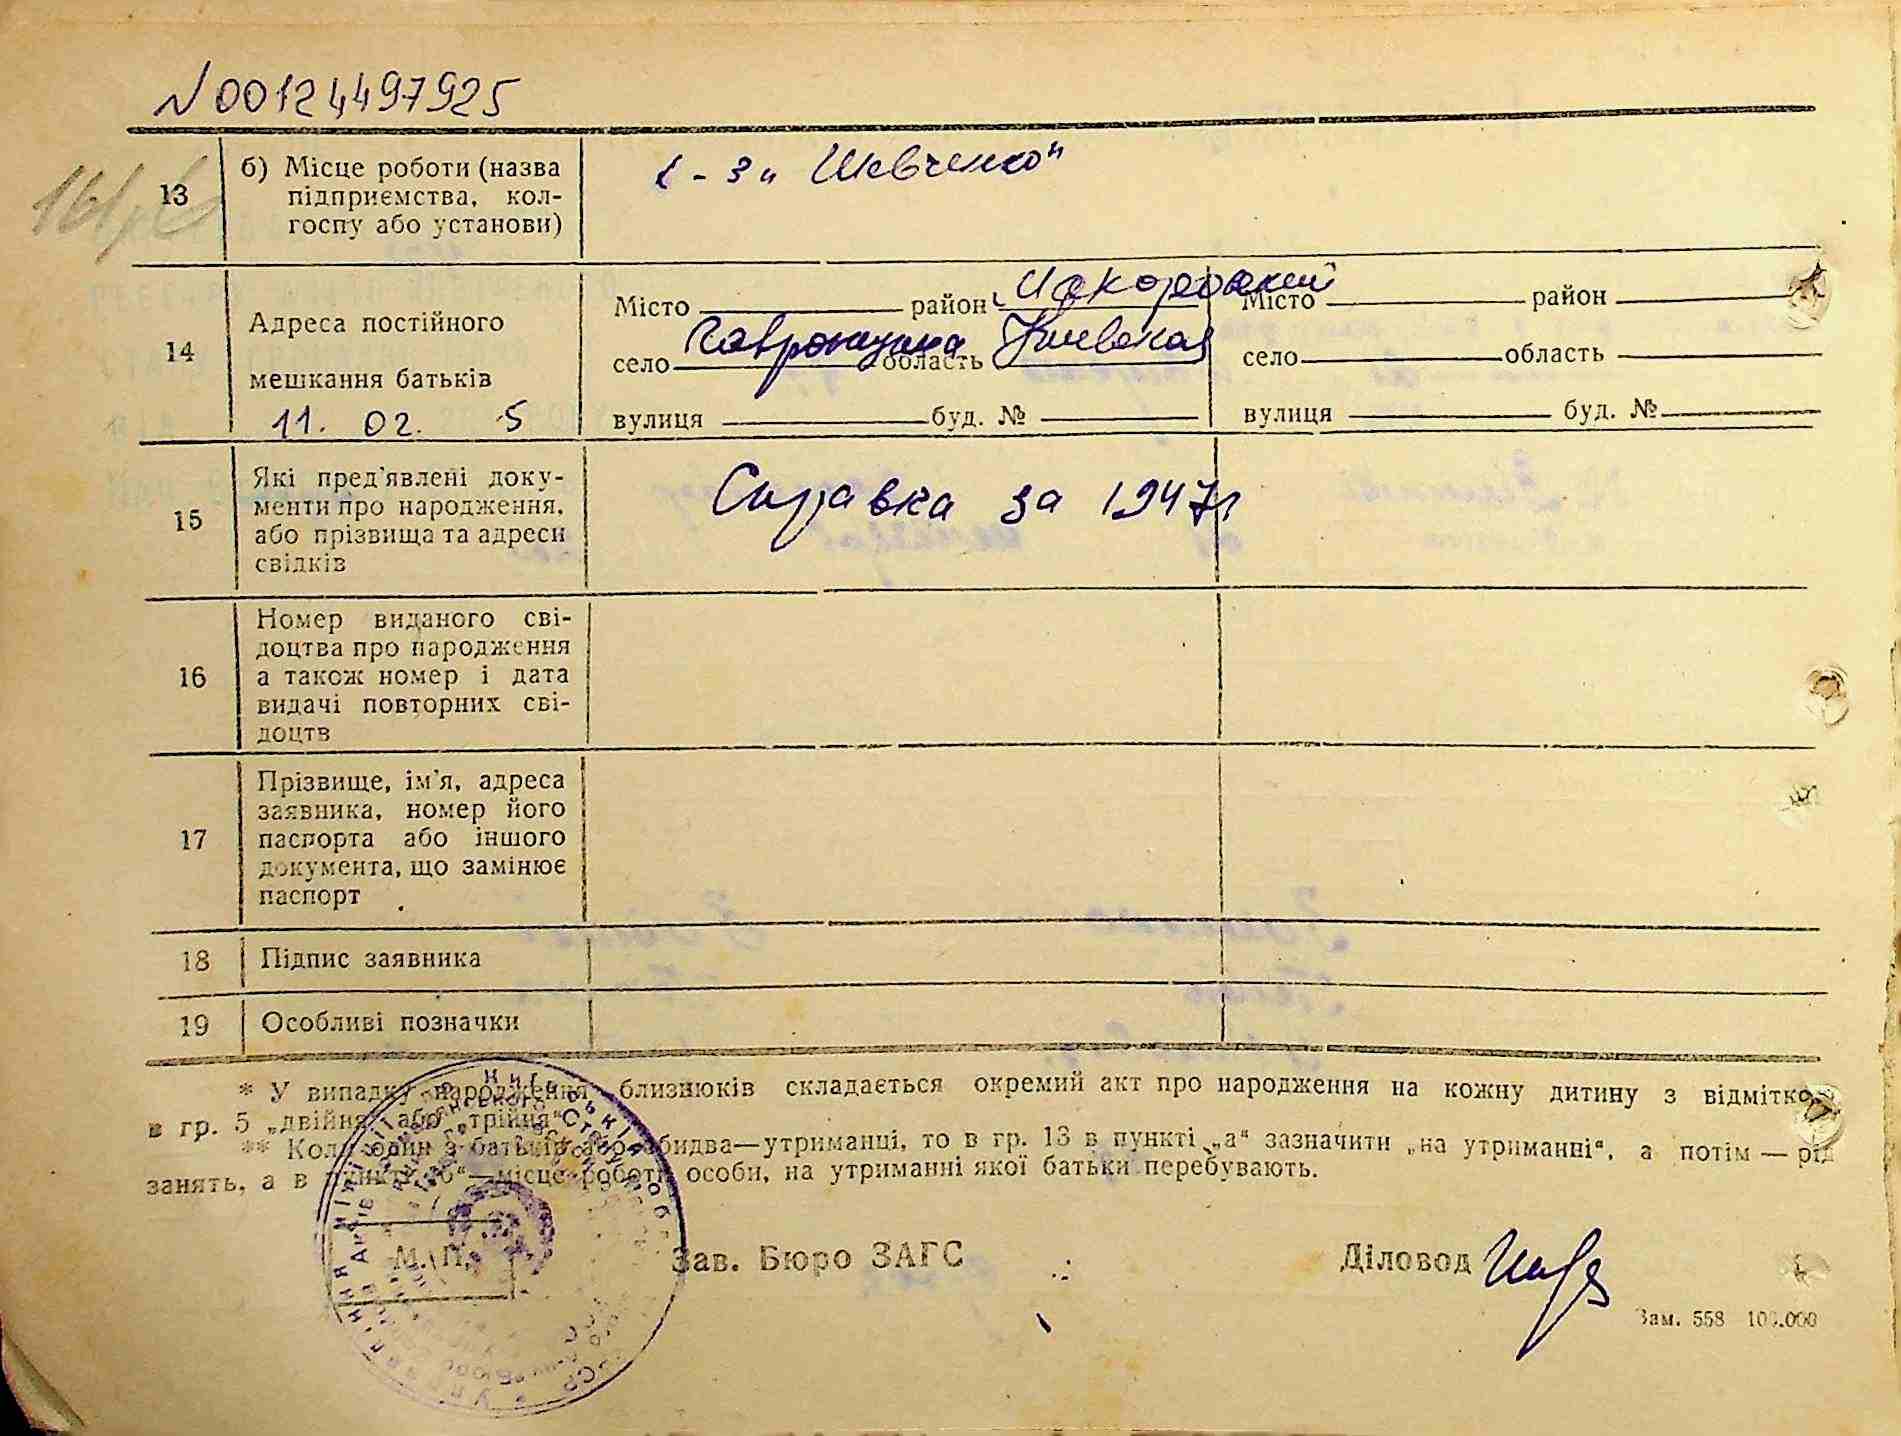 N00124497925
13
б) Місце роботи (назва
підприємства, кол-
госпу або установи)
к-з „Шевченко"
14
Адреса постійного
мешкання батьків
11. 02. 5
Місто район Макоровский
село Гавронщина область Киевская
вулиця буд. №
Місто район
село область
вулиця буд. №
15
Які пред'явлені доку-
менти про народження,
або прізвища та адреси
свідків
Справка за 1947г
16
Номер виданого сві-
доцтва про народження
а також номер і дата
видачі повторних сві-
доцтв
17
Прізвище, ім'я, адреса
заявника, номер його
паспорта або іншого
документа, що замінює
паспорт
18
Підпис заявника
19
Особливі позначки
* У випадку народження близнюків складається окремий акт про народження на кожну дитину з відміткою
в гр. 5 „двійня" або „трійня".
** Коли один з батьків або обидва—утриманці, то в гр. 13 в пункті „а" зазначити „на утриманні", а потім — рід
занять, а в пункті „б"—місце роботи особи, на утриманні якої батьки перебувають.
М. П.
Зав. Бюро ЗАГС
Діловод
Зам. 558 100.000